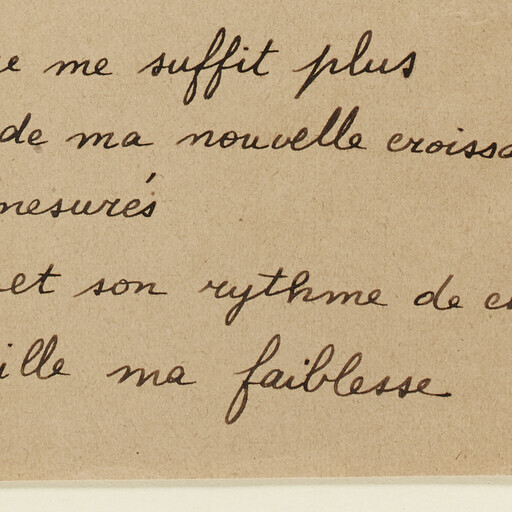 e me suffit plus
de ma nouvelle croissa
mesurés
et son rythme de c
ille ma faiblesse